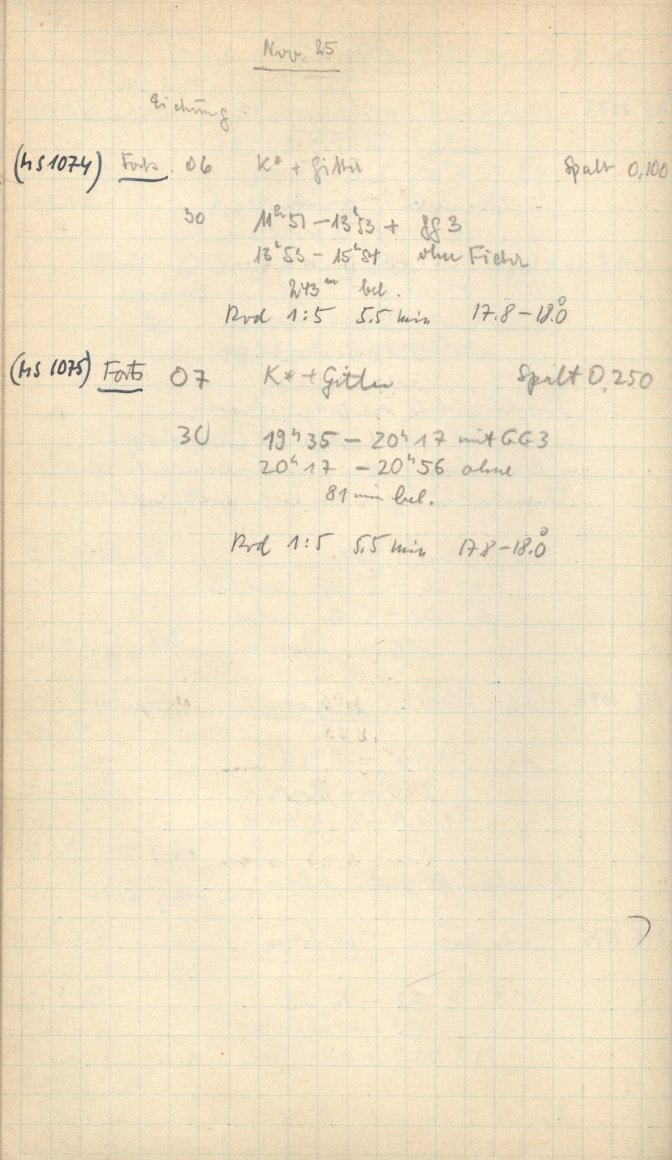 Nov 25
Eichung:
(MS 1074) Forts. 06 K* + Gitter Spalt 0,100
30 11h51 – 13h53 + GG3
13h53 – 15h54 ohne Filter
243m bel.
Rod 1:5 5.5 min 17.8 – 18.0°
(MS 1075) Forts 07 K* + Gitter Spalt 0,250
30 19h35 – 20h17 mit GG3
20h17 – 20h56 ohne
81 min bel.
Rod 1:5 5.5 min 17.8 – 18.0°